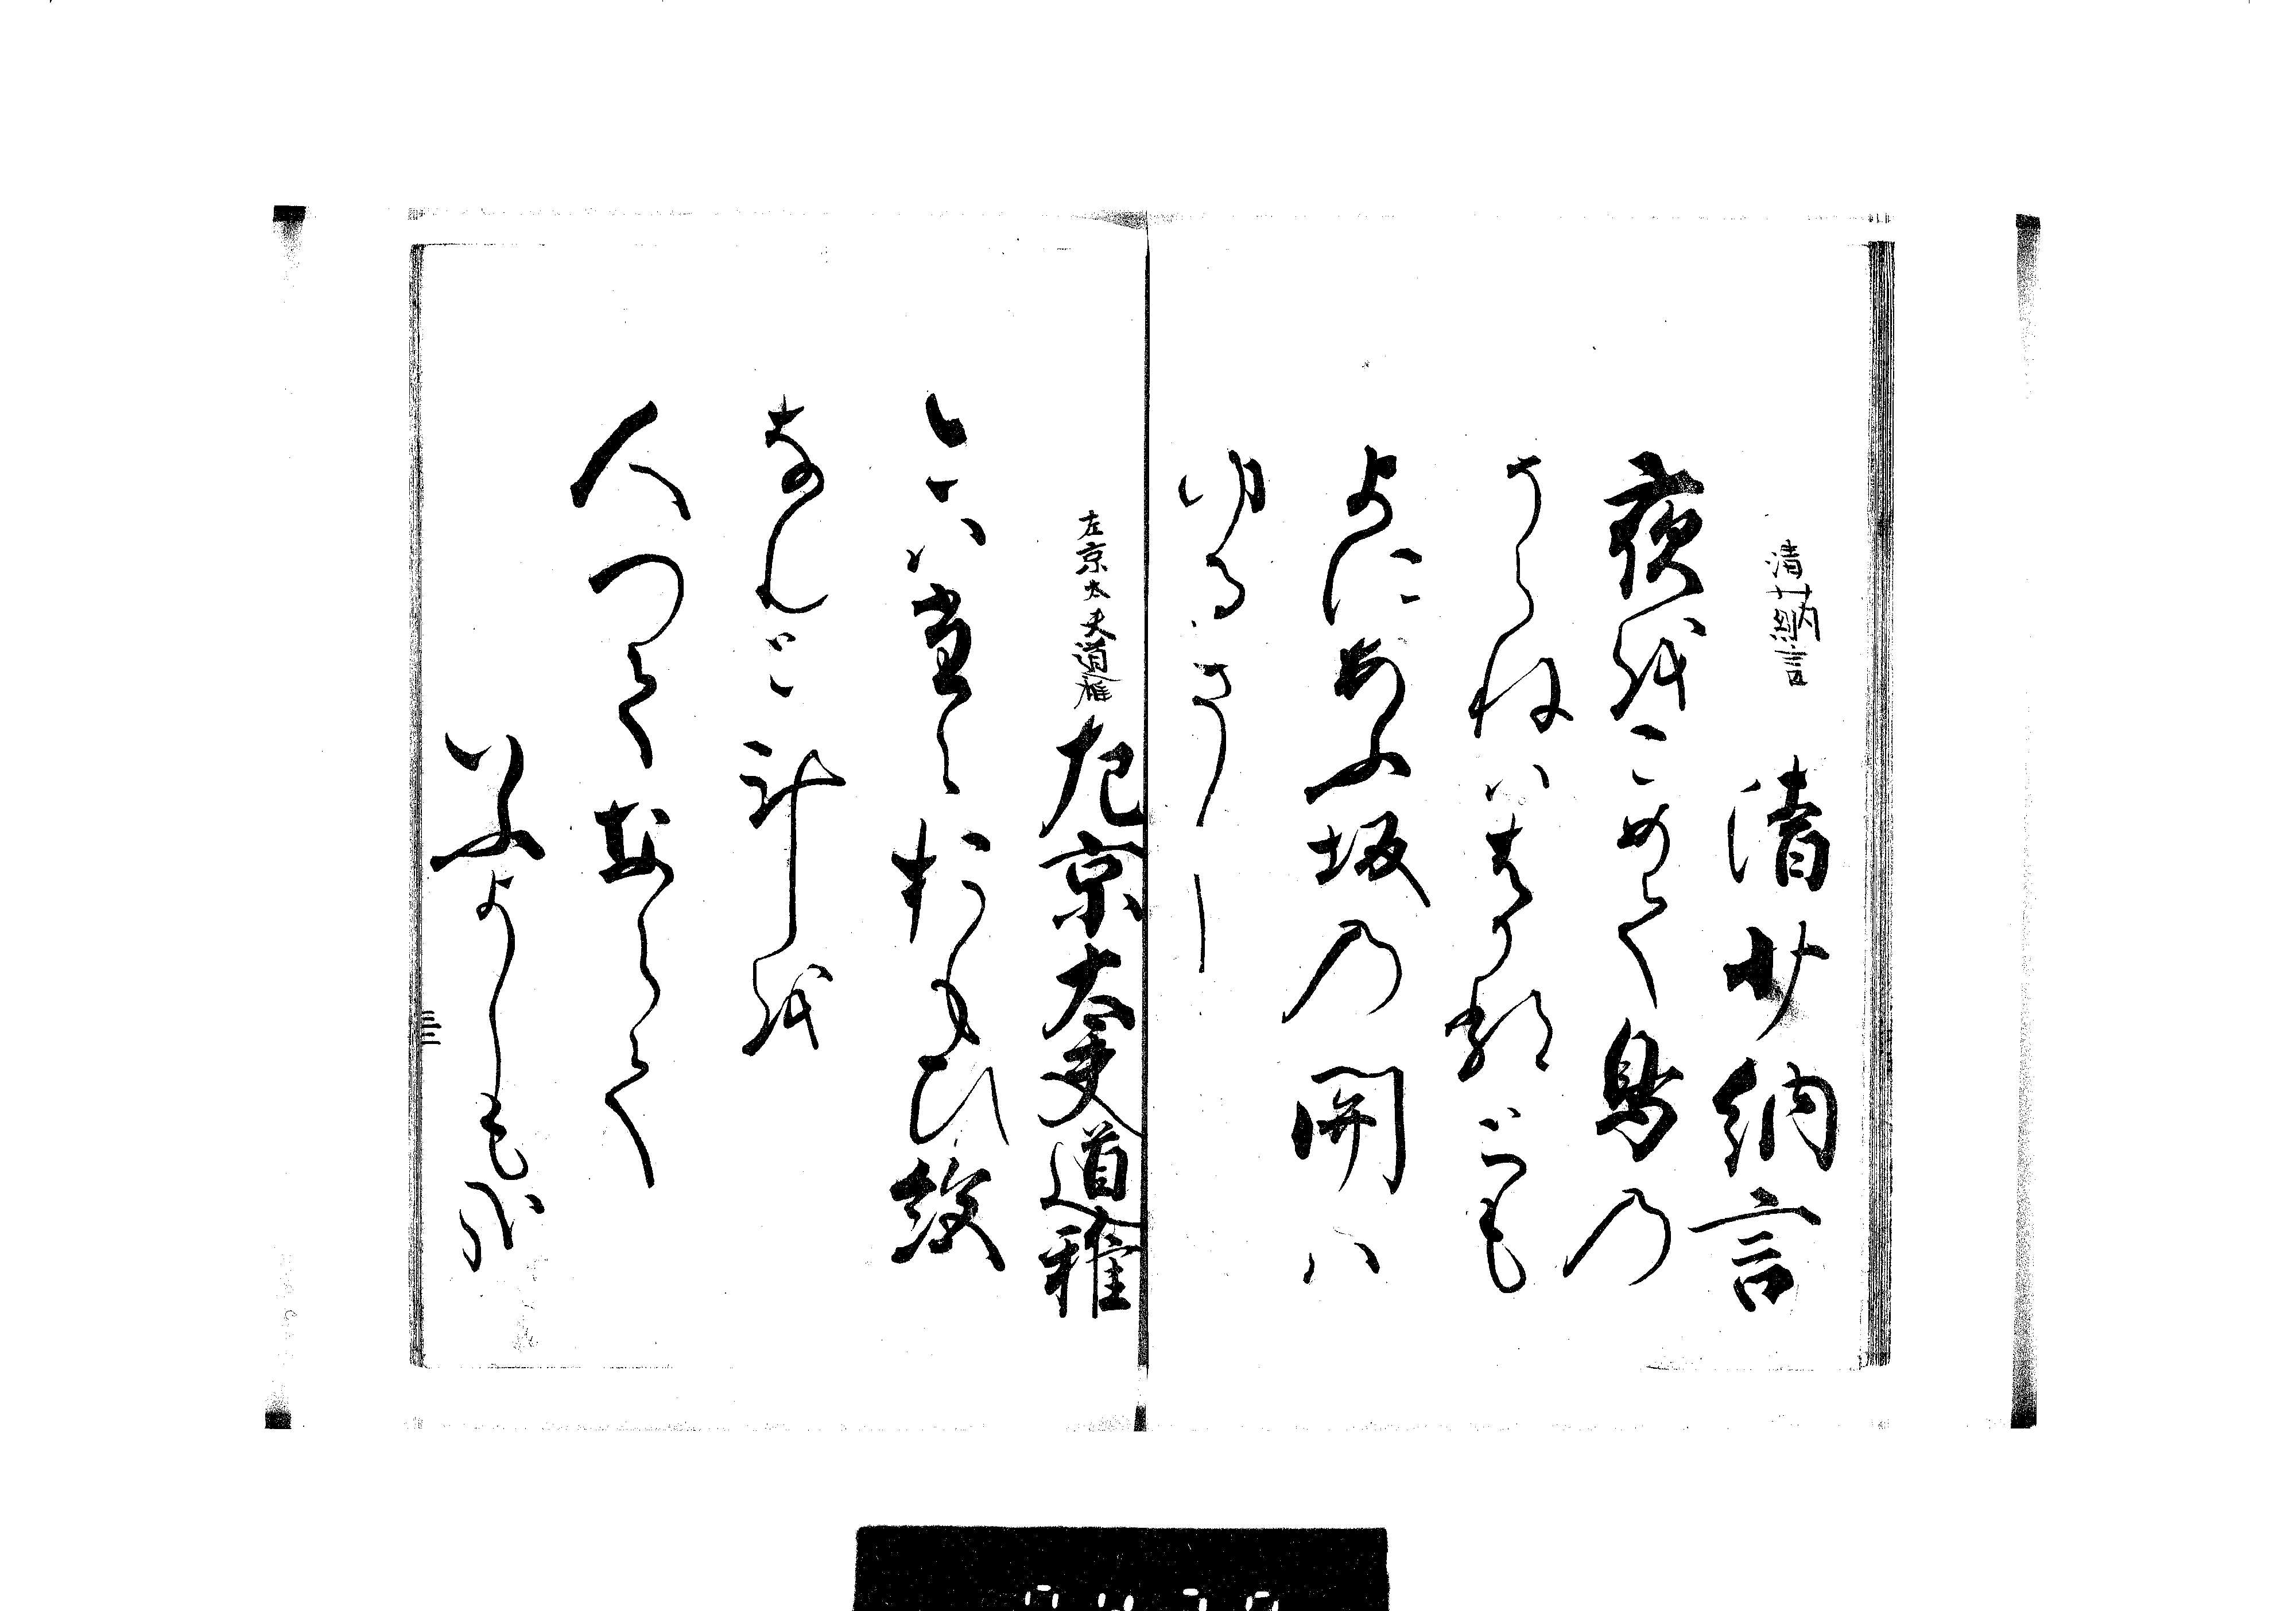 清少納言
清少納言
夜をこめて鳥の
そらねははかるとも
よにあふ坂の関は
ゆるさし
左京太夫道雅
左京大夫道雅
今はたゝおもひ絵
なんと計を
人つてならて
いふよしもか
三十二